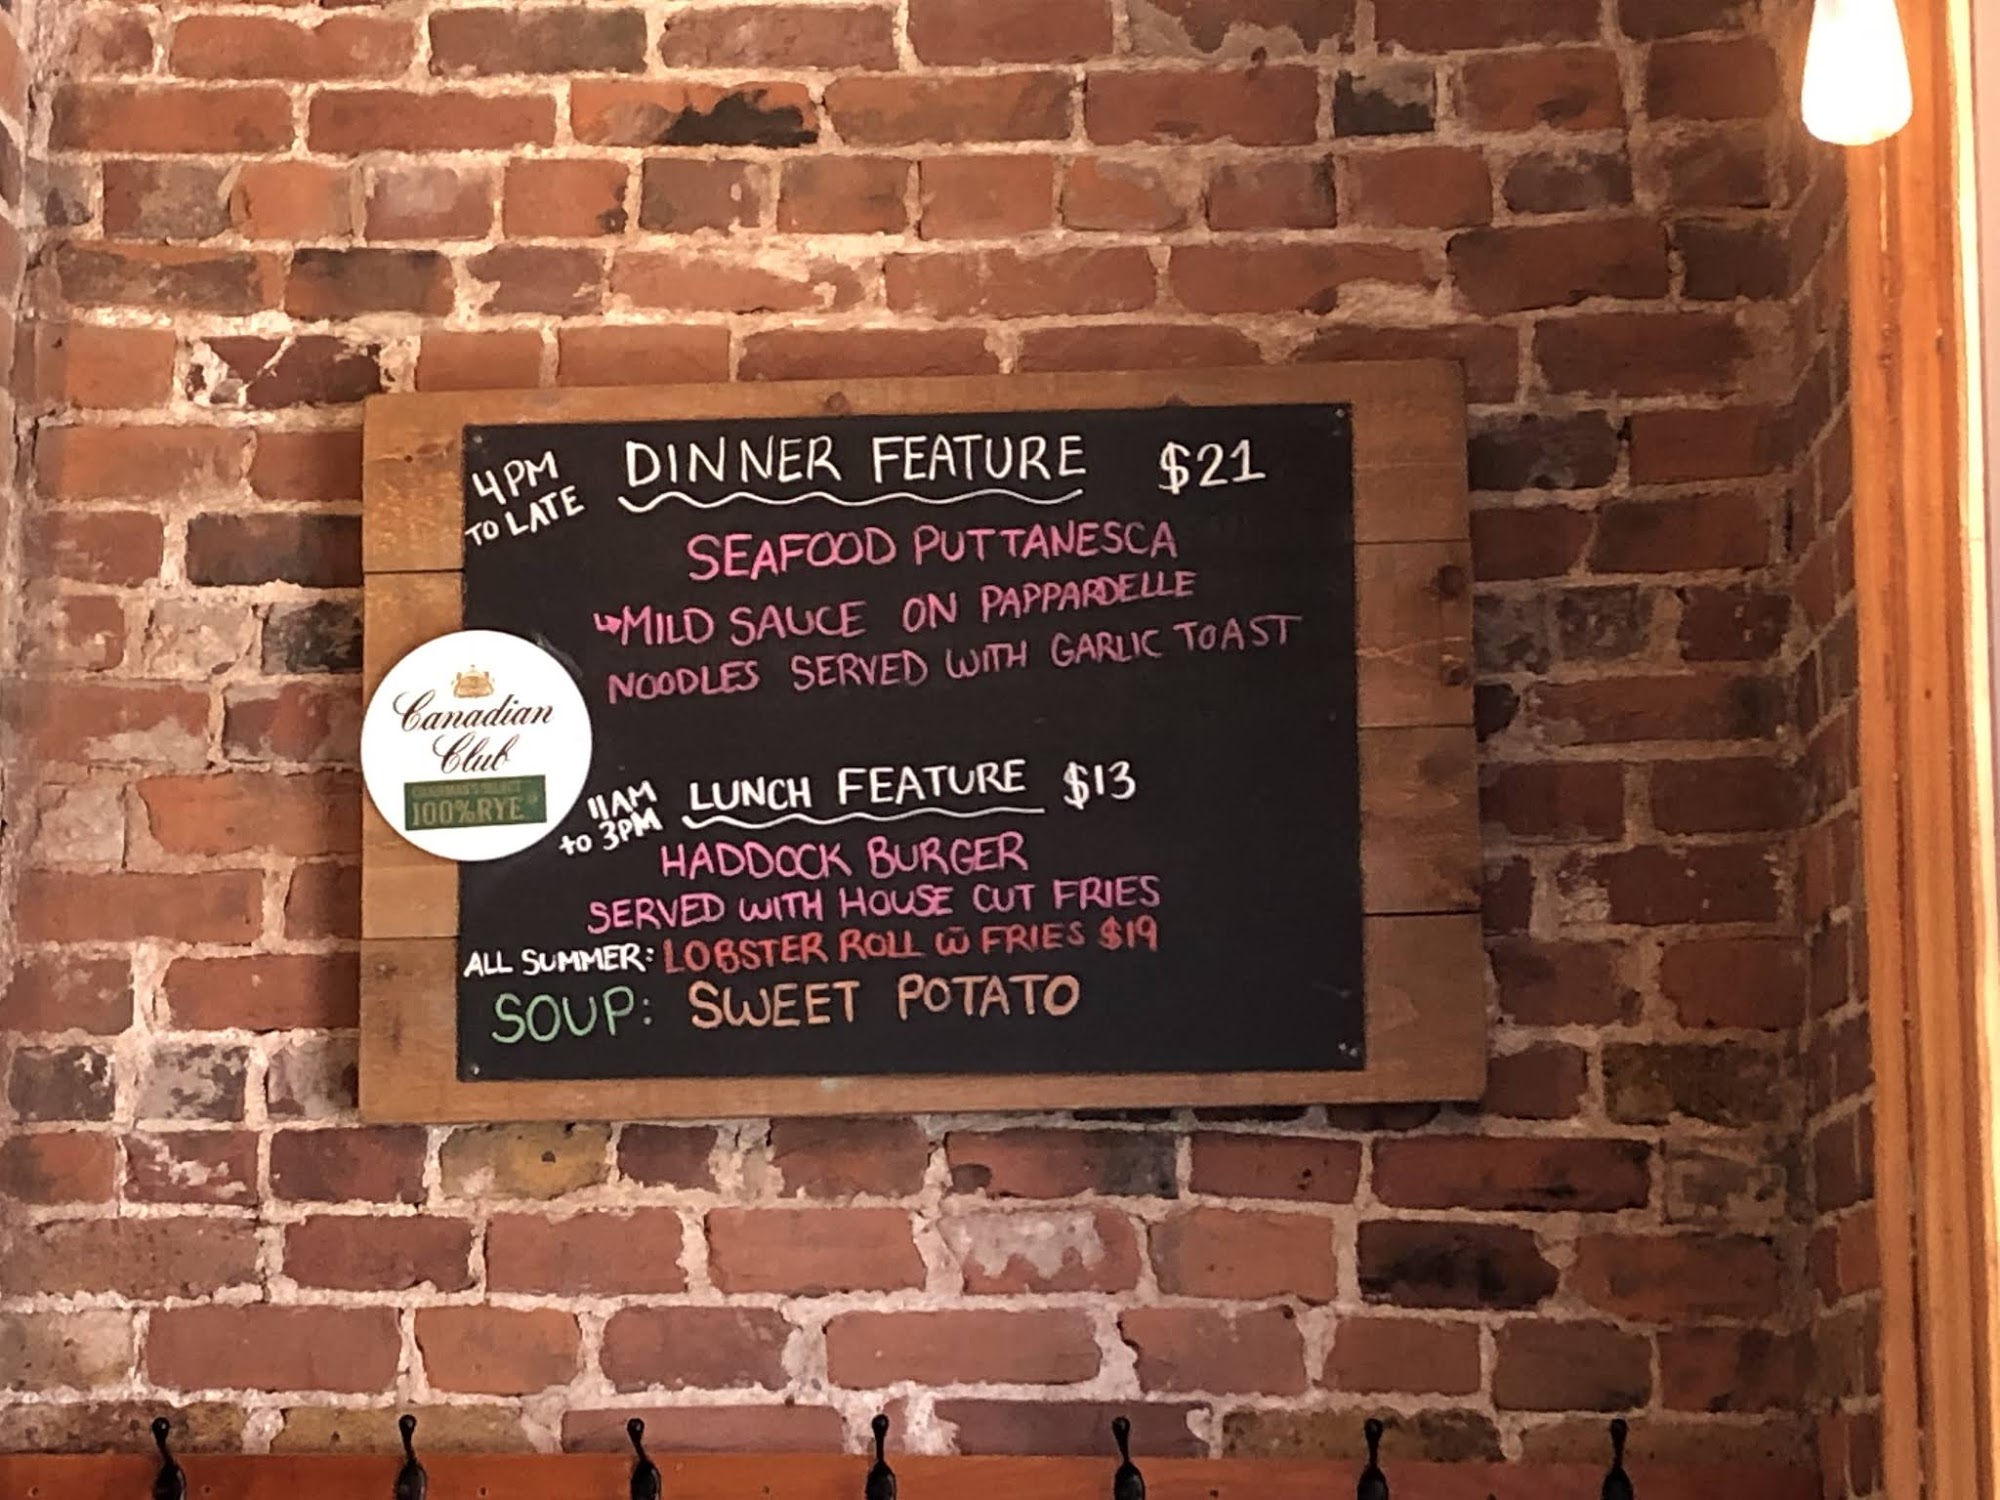 4PM
TO LATE
DINNER FEATURE $21
SEAFOOD PUTTANESCA
↳MILD SAUCE ON PAPPARDELLE
NOODLES SERVED WITH GARLIC TOAST
Canadian
Club
CHAIRMAN'S SELECT
100% RYE
11AM
to 3PM
LUNCH FEATURE $13
HADDOCK BURGER
SERVED WITH HOUSE CUT FRIES
ALL SUMMER: LOBSTER ROLL w̄ FRIES $19
SOUP: SWEET POTATO